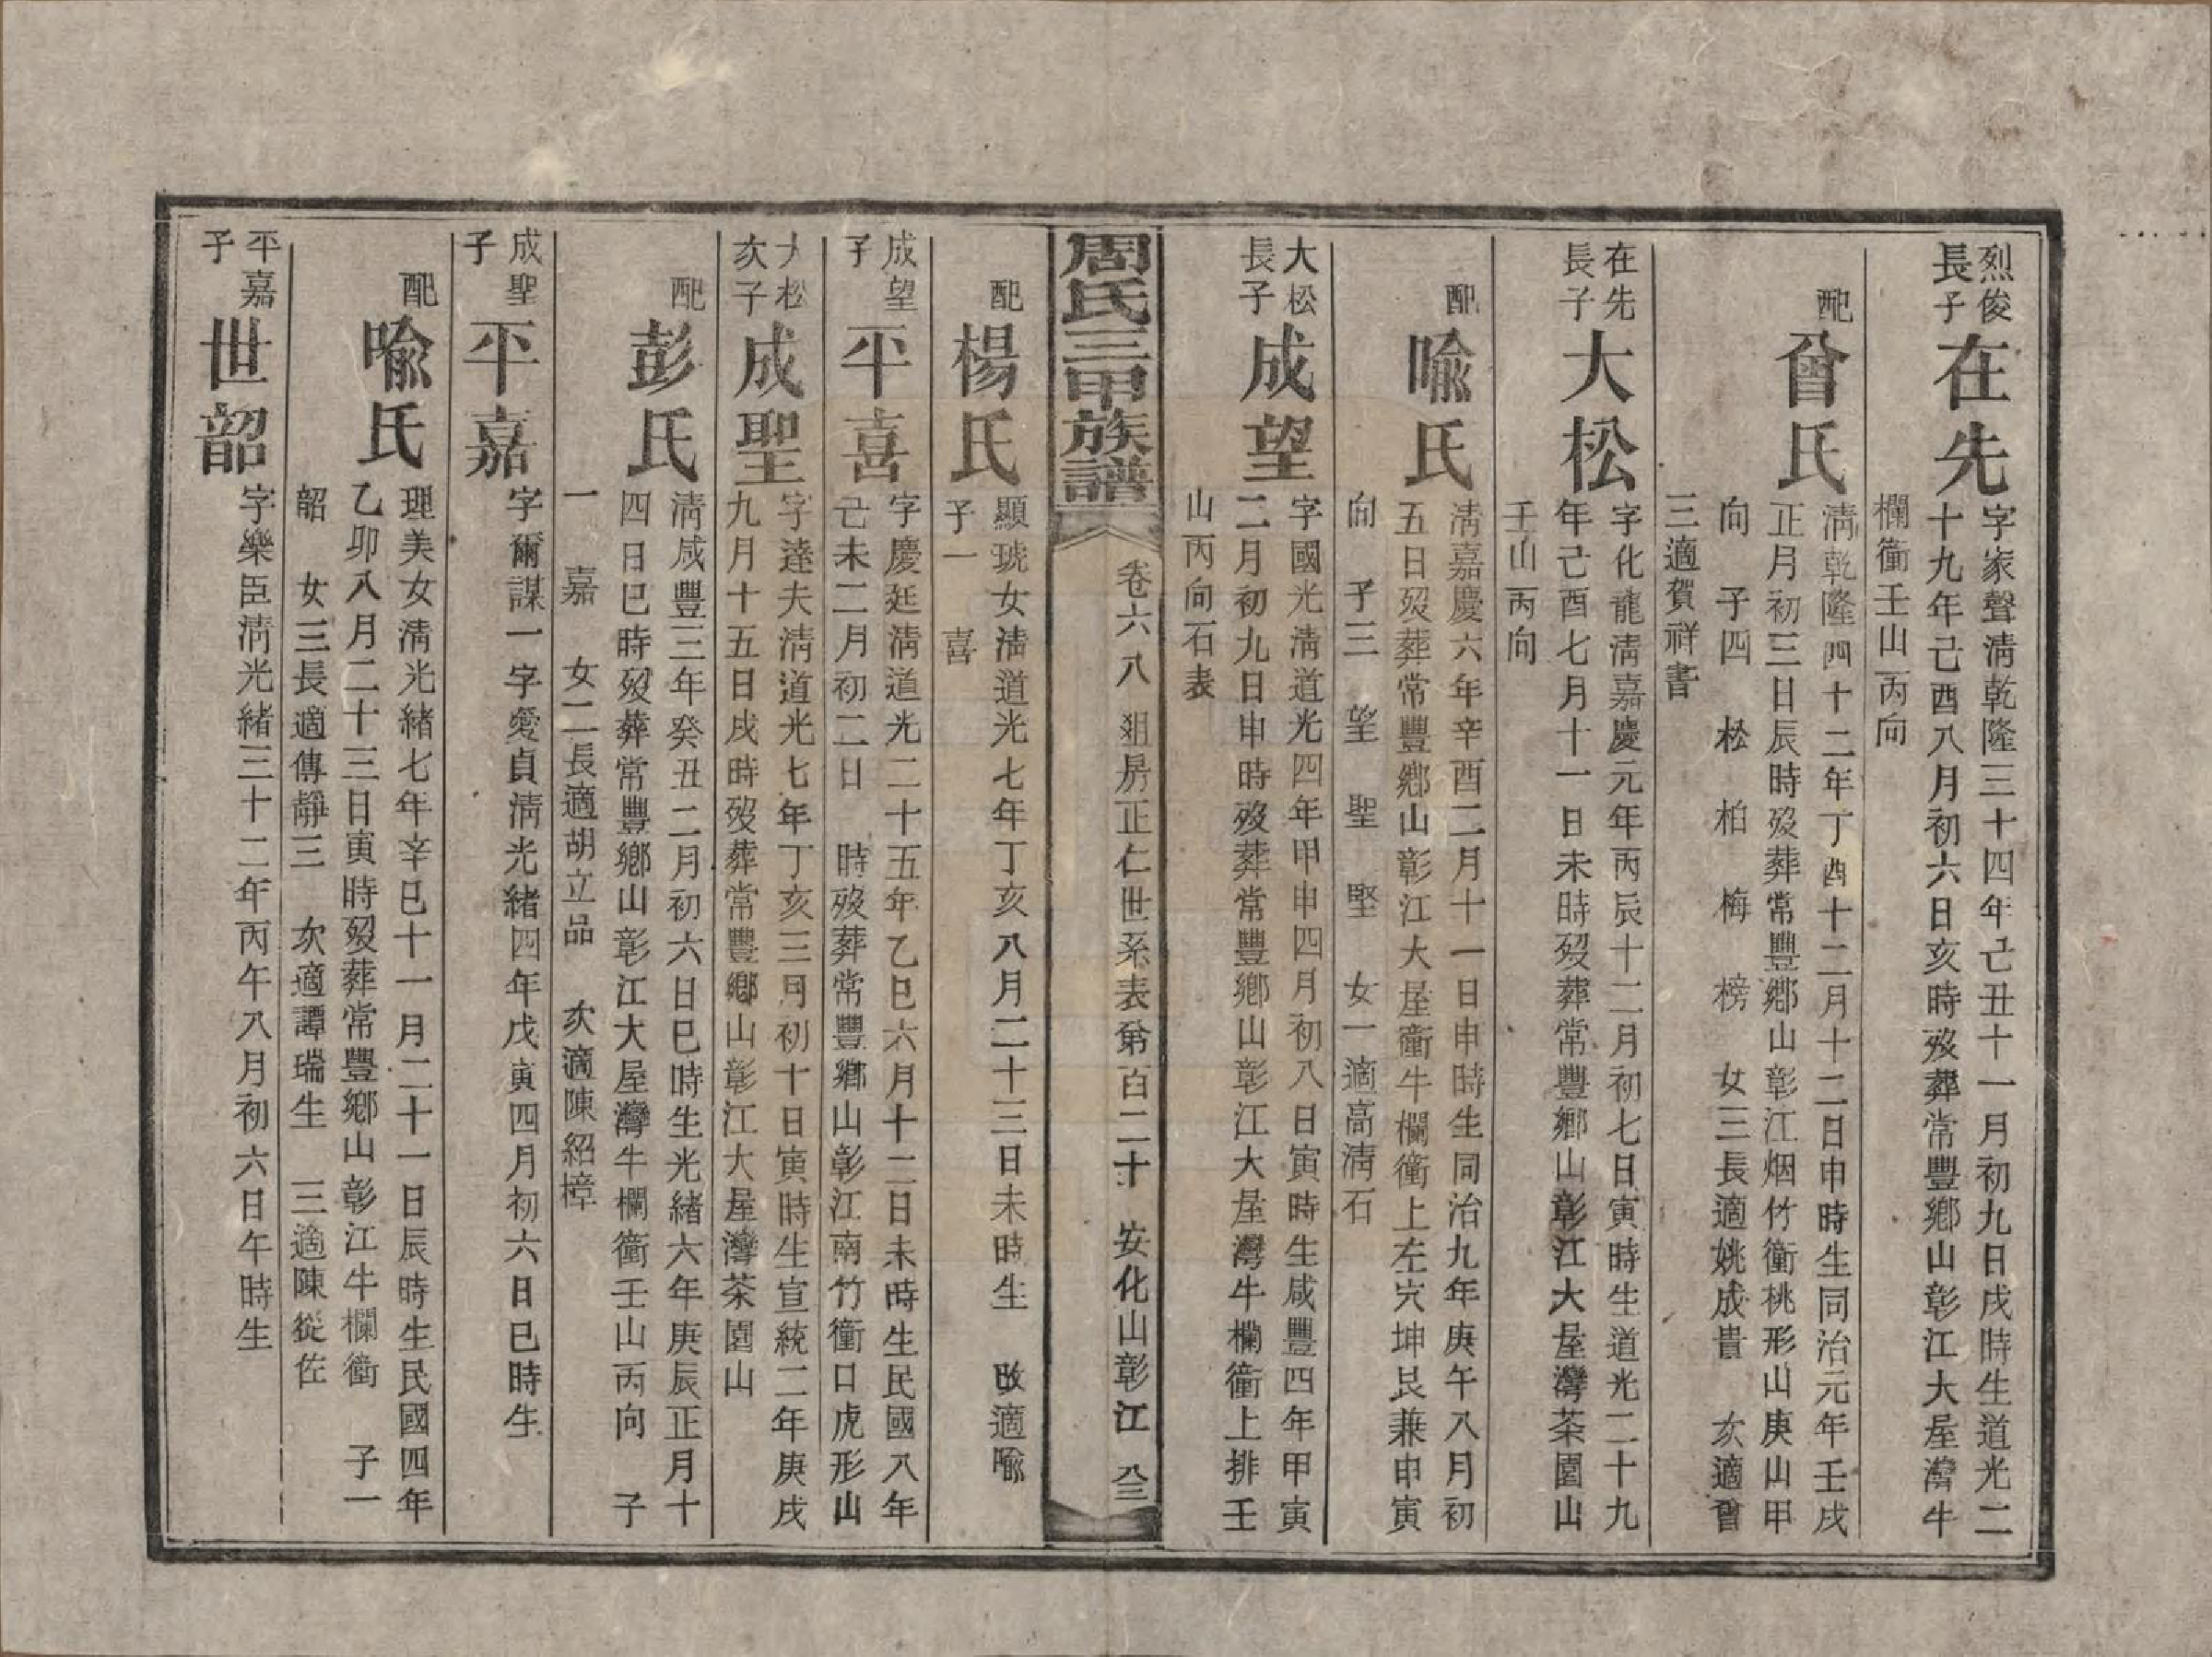 烈俊
長子
在先
字家聲清乾隆三十四年己丑十一月初九日戌時生道光二
十九年己酉八月初六日亥時歿葬常豐鄉山彰江大屋灣牛
欄衝壬山丙向
配
曾氏
清乾隆四十二年丁酉十二月十二日申時生同治元年壬戌
正月初三日辰時歿葬常豐鄉山彰江烟竹衝桃形山庚山甲
向 子四 松 柏 梅 榜 女三長適姚成貴 次適曾
三適賀祥書
在先
長子
大松
字化龍清嘉慶元年丙辰十二月初七日寅時生道光二十九
年己酉七月十一日未時歿葬常豐鄉山彰江大屋灣茶園山
壬山丙向
配
喩氏
清嘉慶六年辛酉二月十一日申時生同治九年庚午八月初
五日歿葬常豐鄉山彰江大屋衝牛欄衝上左穴坤艮兼申寅
向 子三 望 聖 堅 女一適高清石
大松
長子
成望
字國光清道光四年甲申四月初八日寅時生咸豐四年甲寅
二月初九日申時歿葬常豐鄉山彰江大屋灣牛欄衝上排壬
山丙向石表
周氏三甲族譜 卷六八 珇房正仁世系表第百二十 安化山彰江 八三
配
楊氏
顯琥女清道光七年丁亥八月二十三日未時生 改適喩
子一 喜
成望
子
平喜
字慶廷清道光二十五年乙巳六月十二日未時生民國八年
己未二月初二日 時歿葬常豐鄉山彰江南竹衝口虎形山
大松
次子
成聖
字達夫清道光七年丁亥三月初十日寅時生宣統二年庚戌
九月十五日戌時歿葬常豐鄉山彰江大屋灣茶園山
配
彭氏
清咸豐三年癸丑二月初六日巳時生光緒六年庚辰正月十
四日巳時歿葬常豐鄉山彰江大屋灣牛欄衝壬山丙向 子
一 嘉 女二長適胡立品 次適陳紹樟
成聖
子
平嘉
字爾謀一字愛貞清光緒四年戊寅四月初六日巳時生
配
喩氏
理美女清光緒七年辛巳十一月二十一日辰時生民國四年
乙卯八月二十三日寅時歿葬常豐鄉山彰江牛欄衝 子一
韶 女三長適傅靜三 次適譚瑞生 三適陳從佐
平嘉
子
世韶
字樂臣清光緒三十二年丙午八月初六日午時生